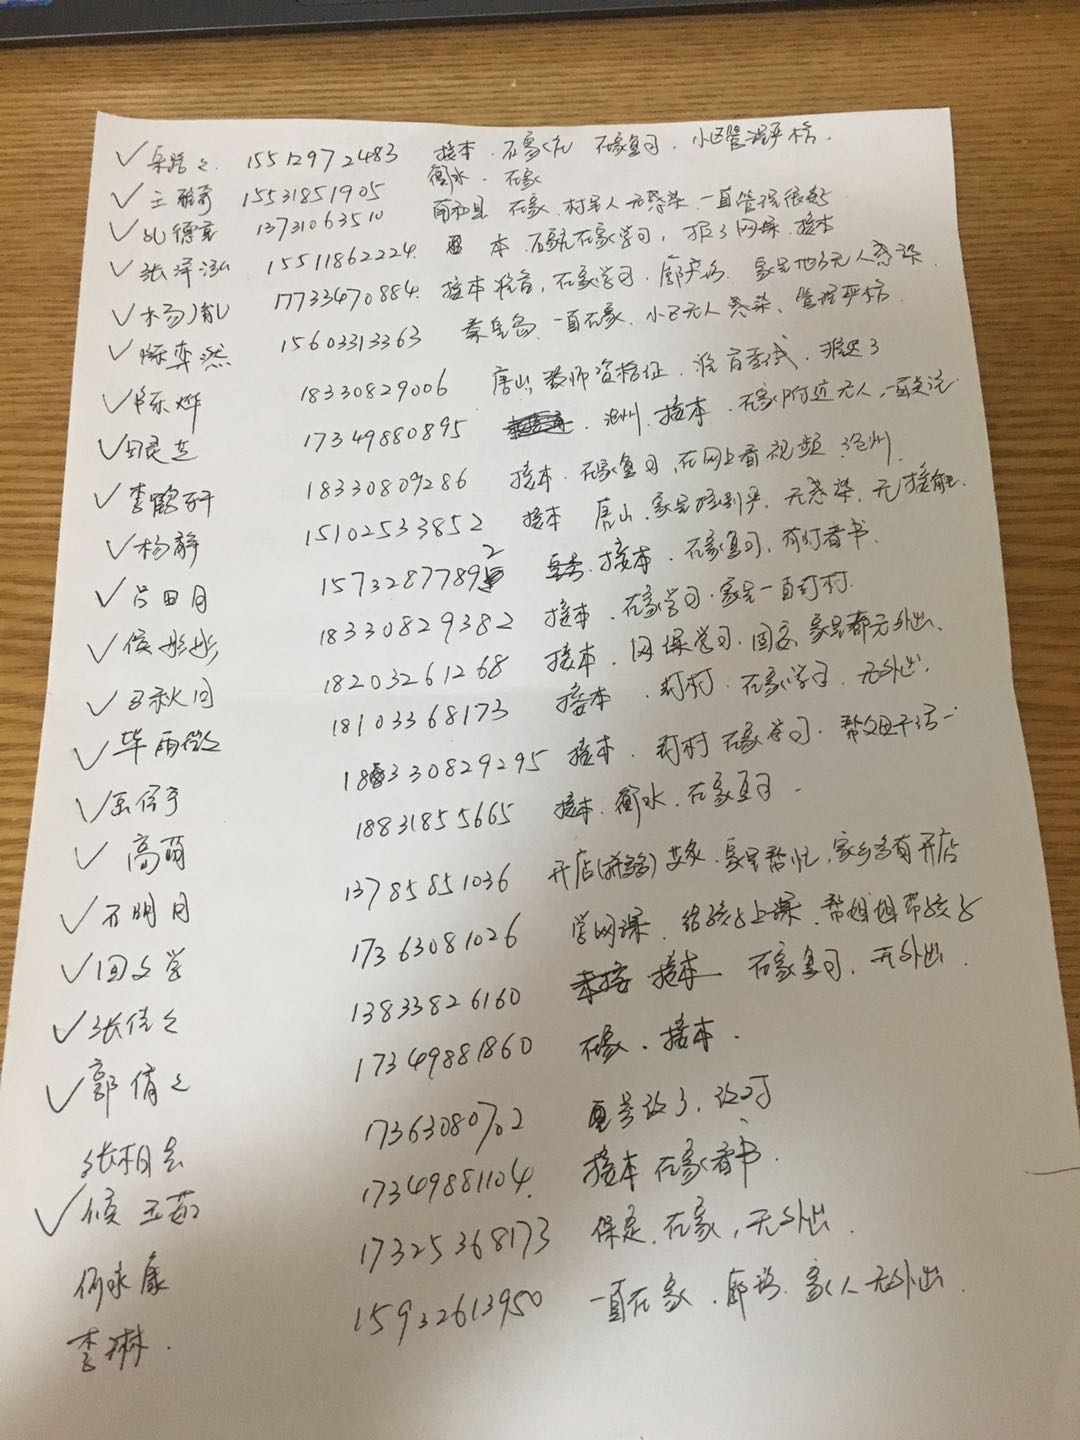 15512972483 接本. 在家 在家复习. 小区管理严格.
王雅奇 15531851905 衡水. 在家
德京 13731063510 南和县 在家. 村里人无感染. 一直管理很好
张泽泓 15511862224. 本. 在家学习, 报了网课. 接本
杨 17733470884. 接本 在家学习. 廊坊. 家里地方无人感染.
陈奕然 15603313363 秦皇岛. 一直在家. 小区无人感染. 管理严格.
陈烨 18330829006 唐山. 教师资格证. 推迟了
田灵芝 17349880895 沧州. 接本. 在家附近无人.
李鹤轩 18330809286 接本. 在家复习, 在网上看视频. 沧州.
杨静 15102533852 接本 唐山. 家里 无感染. 无接触.
吕田月 1573287789 2 接本. 在家复习, 有时看书.
侯彤彤 18330829382 接本. 在家学习. 家里一直封村.
秋 18203261268 接本. 网课学习. 家里都无外出.
毕雨微 18103368173 接本. 封村. 在家学习. 无外出.
18330829295 接本. 封村 在家学习. 帮父母干活.
高萌 18831855665 接本. 衡水. 在家复习.
石明月 13785851036 开店 艾灸. 家里帮忙, 家乡有开店
田文学 17363081026 学网课. 给孩子上课. 帮姐姐带孩子
张佳之 13833826160 接本 在家复习. 无外出.
郭倩之 17349881860 在家. 接本.
张相云 17363080702 号改了.
侯玉茹 17349881104. 接本 在家看书.
何永康 17325368173 保定. 在家, 无外出.
李琳. 15932613950 一直在家. 廊坊. 家人无外出.